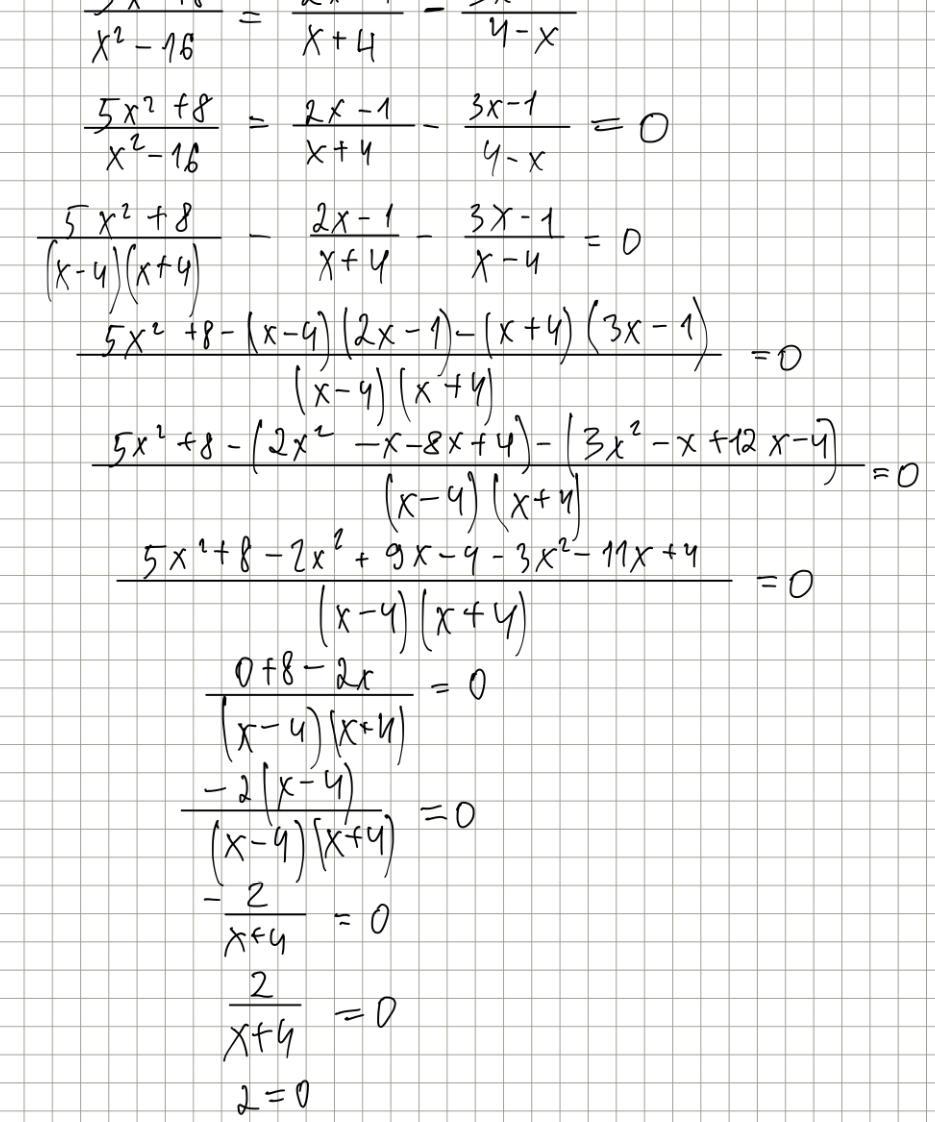 x² - 16 = x + 4 - 4 - x
(5x² + 8)/(x² - 16) = (2x - 1)/(x + 4) - (3x - 1)/(4 - x) = 0
(5x² + 8)/((x - 4)(x + 4)) - (2x - 1)/(x + 4) - (3x - 1)/(x - 4) = 0
(5x² + 8 - (x - 4)(2x - 1) - (x + 4)(3x - 1))/((x - 4)(x + 4)) = 0
(5x² + 8 - (2x² - x - 8x + 4) - (3x² - x + 12x - 4))/((x - 4)(x + 4)) = 0
(5x² + 8 - 2x² + 9x - 4 - 3x² - 11x + 4)/((x - 4)(x + 4)) = 0
(0 + 8 - 2x)/((x - 4)(x + 4)) = 0
(-2(x - 4))/((x - 4)(x + 4)) = 0
-2/(x + 4) = 0
2/(x + 4) = 0
2 = 0